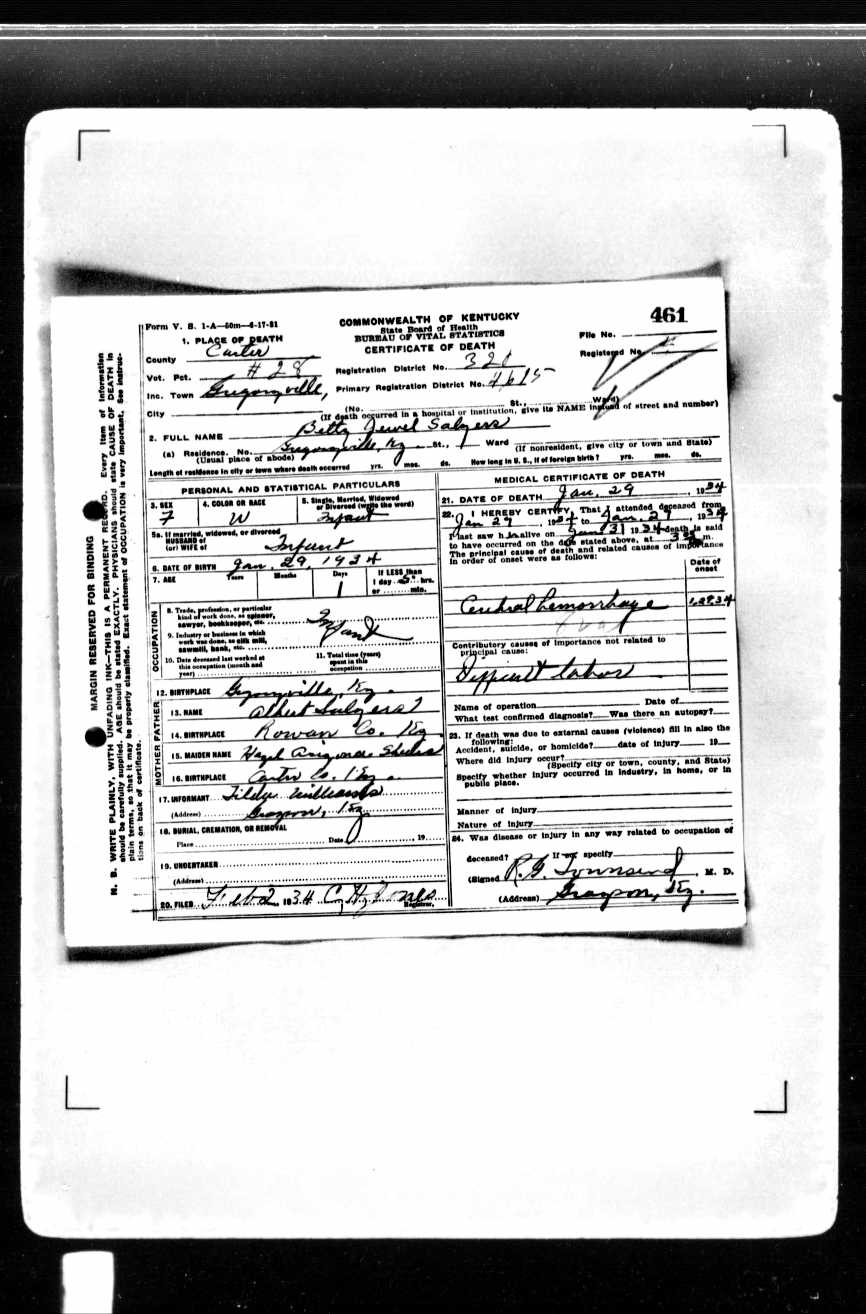 461
Form V. S. 1-A—50m—6-17-31
COMMONWEALTH OF KENTUCKY
State Board of Health
BUREAU OF VITAL STATISTICS
CERTIFICATE OF DEATH
File No.
Registered No.
1. PLACE OF DEATH
County Carter
Vot. Pct. #28
Registration District No. 321
Inc. Town Gregoryville,
Primary Registration District No. 4615
City (No. St., Ward)
(If death occurred in a hospital or institution, give its NAME instead of street and number)
2. FULL NAME Betty Jewel Salyers
(a) Residence. No. Gregoryville, Ky St., Ward
(Usual place of abode) (If nonresident, give city or town and State)
Length of residence in city or town where death occurred yrs. mos. ds. How long in U. S., if of foreign birth? yrs. mos. ds.
PERSONAL AND STATISTICAL PARTICULARS
3. SEX F
4. COLOR OR RACE W
5. Single, Married, Widowed or Divorced (write the word) Infant
5a. If married, widowed, or divorced
HUSBAND of
(or) WIFE of Infant
6. DATE OF BIRTH Jan. 29, 1934
7. AGE Years Months Days 1
If LESS than
1 day 5 hrs.
or min.
OCCUPATION
8. Trade, profession, or particular
kind of work done, as spinner,
sawyer, bookkeeper, etc. Infant
9. Industry or business in which
work was done, as silk mill,
sawmill, bank, etc. Infant
10. Date deceased last worked at
this occupation (month and
year)
11. Total time (years)
spent in this
occupation
12. BIRTHPLACE Gregoryville, Ky.
FATHER
13. NAME Albert Salyers
14. BIRTHPLACE Rowan Co. Ky.
MOTHER
15. MAIDEN NAME Hazel Arizona
16. BIRTHPLACE Carter Co. Ky.
17. INFORMANT Tilda Williams
(Address) Grayson, Ky.
18. BURIAL, CREMATION, OR REMOVAL
Place Date 19
19. UNDERTAKER
(Address)
20. FILED Feb 2 1934 Jones
Registrar.
MEDICAL CERTIFICATE OF DEATH
21. DATE OF DEATH Jan. 29 1934
22. I HEREBY CERTIFY, That I attended deceased from
Jan 29, 1934 to Jan. 29, 1934
I last saw h alive on 31 1934 death is said
to have occurred on the date stated above, at m.
The principal cause of death and related causes of importance
in order of onset were as follows:
Date of
onset
Cerebral hemorrhage 1,29,34
Contributory causes of importance not related to
principal cause:
Difficult labor
Name of operation Date of
What test confirmed diagnosis? Was there an autopsy?
23. If death was due to external causes (violence) fill in also the
following:
Accident, suicide, or homicide? date of injury 19
Where did injury occur?
(Specify city or town, county, and State)
Specify whether injury occurred in industry, in home, or in
public place.
Manner of injury
Nature of injury
24. Was disease or injury in any way related to occupation of
deceased? If so, specify
(Signed R. G. Townsend, M. D.
(Address) Grayson, Ky.
MARGIN RESERVED FOR BINDING
N. B. WRITE PLAINLY, WITH UNFADING INK—THIS IS A PERMANENT RECORD. Every item of information
should be carefully supplied. AGE should be stated EXACTLY. PHYSICIANS should state CAUSE OF DEATH in
plain terms, so that it may be properly classified. Exact statement of OCCUPATION is very important. See instruc-
tions on back of certificate.